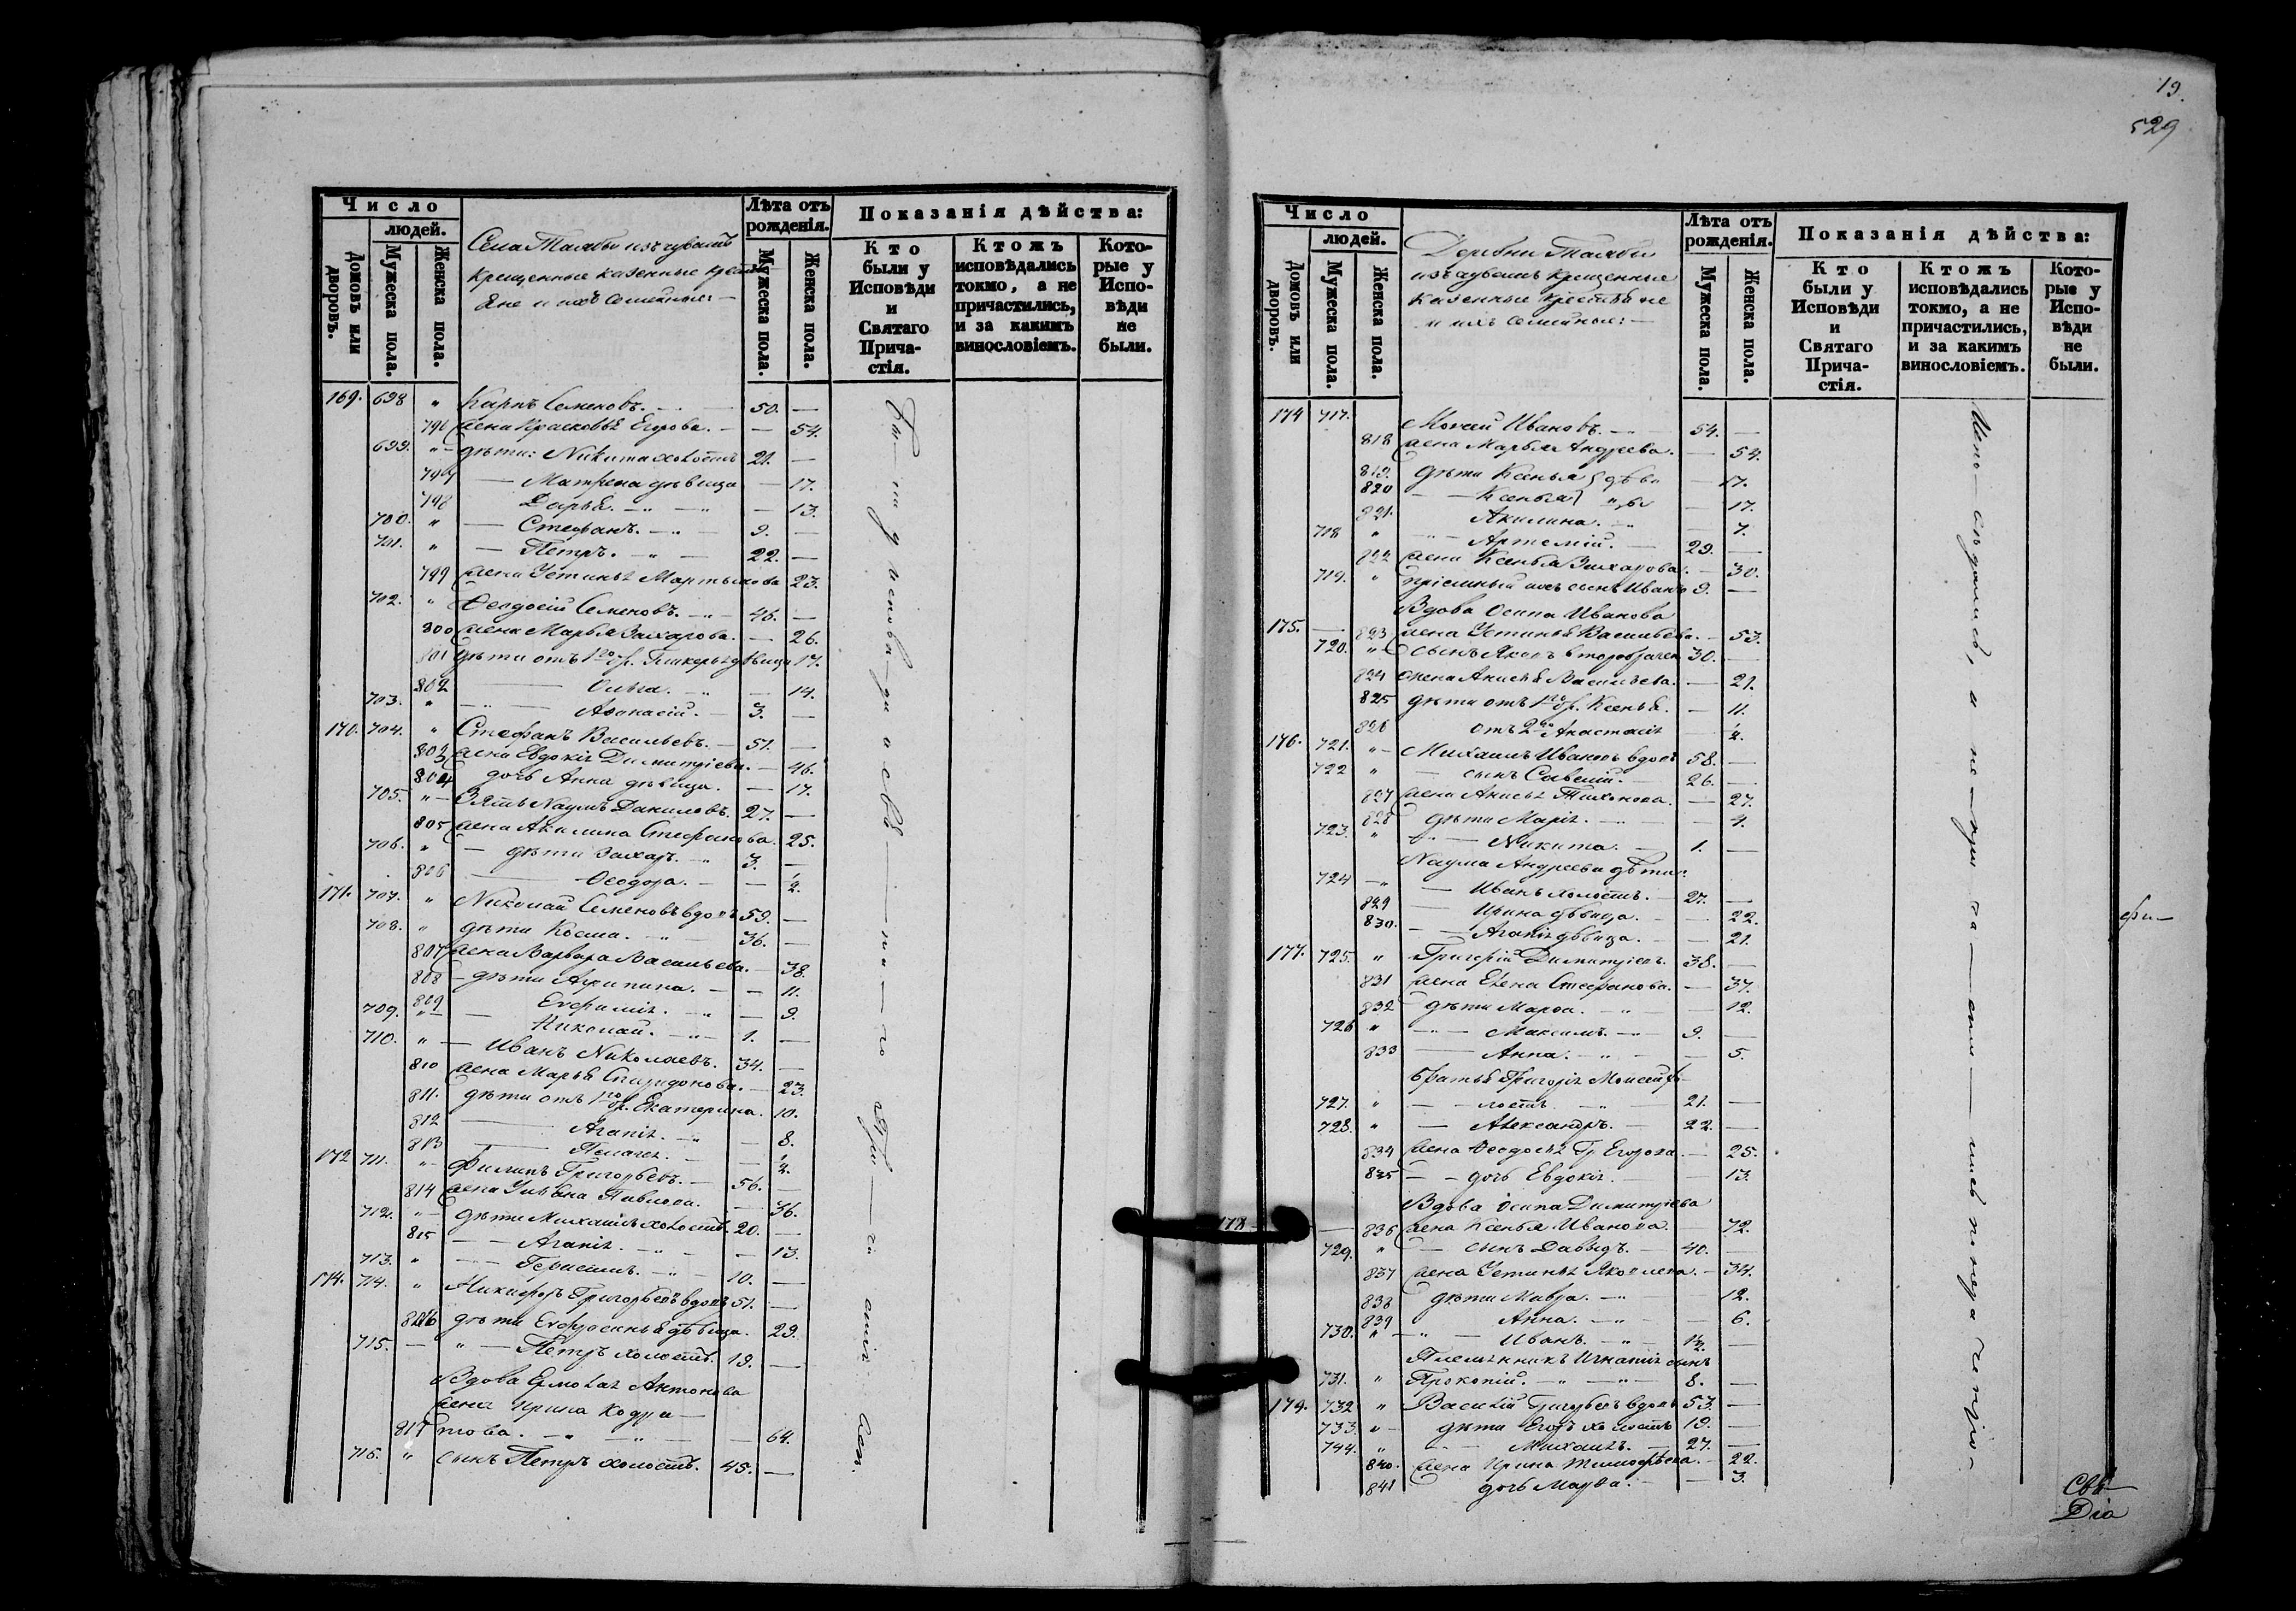 Число
людей.
Домовъ или дворовъ.
Мужеска пола.
Женска пола.
Села Таябы изъ чувашъ
крещенные казенные кресть
яне и ихъ семейные:—
Лѣта отъ рожденія.
Мужеска пола.
Женска пола.
Показанія дѣйства:
Кто были у Исповѣди и Святаго Причастія.
Ктожъ исповѣдались токмо, а не причастились, и за какимъ винословіемъ.
Которые у Исповѣди не были.
169. 698 " Карпъ Семеновъ. — 50. —
796 жена Прасковья Егорова. — — 54.
699. " — дѣти: Никита холостъ 21. —
797 — Матрена дѣвица — 17.
798 Дарья. — " — " — 13.
700. " — Стефанъ. — " — 9. —
701. " — Петръ. — " — 22. —
799 жена Устинья Мартынова 23.
702. " Феодосій Семеновъ. — " — 46. —
800 жена Марья Захарова. — 26.
801 дѣти отъ 1го бр. Гликерья дѣвица 17.
802 — Ольга. — " — 14.
703. " — " — Афанасій. — 3. —
170. 704. " Стефанъ Васильевъ. — 51. —
803 жена Евдокія Димитріева. — 46.
804 дочь Анна дѣвица. — 17.
705. " — Зять Наумъ Даниловъ. 27. —
805 жена Акилина Стефанова. 25.
706. " — дѣти Захаръ. — " 3. —
806 — Феодора. — — 1/2.
171. 707. " Николай Семеновъ вдовъ 59. —
708. " дѣти Косма. — " — 36. —
807 жена Варвара Васильева. — 38.
808 — дѣти Агрипина. — — 11.
809 Евфимія. — " — 9.
709. " — Николай. — " — 1. —
710. " — Иванъ Николаевъ. 34. —
810 жена Марья Спиридонова. — 23.
811. дѣти отъ 1го бр. Екатерина. 10.
812 — Агапія. — " — 8.
813 — Пелагея. — — 1/2.
172 711. " — Филиппъ Григорьевъ. — 56. —
814 жена Ульяна Павлова. — 36.
712. " — дѣти Михаилъ холостъ. 20. —
815 — — Агапія. — " — — 13.
713. " — " — Герасимъ. — " — 10. —
174. 714. " Никифоръ Григорьевъ вдовъ 51. —
816 дѣти Евфросинья дѣвица. 29.
715. — " — Петръ холостъ. 19. —
Вдова Ермолая Антонова
жена Ирина Кодра—
817 това. — " — " — — 64.
716. " сынъ Петръ холостъ. 45. —
19.
529
Число
людей.
Домовъ или дворовъ.
Мужеска пола.
Женска пола.
Деревни Таябы
изъ чувашъ крещенные
казенные крестьяне
и ихъ семейные:—
Лѣта отъ рожденія.
Мужеска пола.
Женска пола.
Показанія дѣйства:
Кто были у Исповѣди и Святаго Причастія.
Ктожъ исповѣдались токмо, а не причастились, и за какимъ винословіемъ.
Которые у Исповѣди не были.
174 717. Моисей Ивановъ. — " — 54. —
818 жена Марья Андреева. — 54.
819. дѣти Ксенья — 17.
820 — — Ксенья — 17.
821. Акилина. — " — 7.
718 " " — Артемій. — 29. —
822 жена Ксенья Захарова. — 30.
719. " пріемный ихъ сынъ Иванъ 9. —
Вдова Осипа Иванова
175. — 823 жена Устинья Васильева. — 53.
720. " — сынъ Яковъ второбрачен 30. —
824 жена Анисья Васильева. — 21.
825 дѣти отъ 1го бр. Ксенья. — 11.
826 отъ 2го Анастасія — 1/2.
176. 721. " — Михаилъ Ивановъ вдовъ 58. —
722 " — сынъ Савелій. — 26. —
827 жена Анисья Тихонова. — 27.
828 дѣти Марія. — " — 4.
723. " " — Никита. — 1. —
Наума Андреева дѣти:
724 — " — Иванъ холостъ. — 27. —
829 — Ирина дѣвица. — — 22.
830. — — Агапія дѣвица. — — 21.
177. 725. " Григорій Димитріевъ. 38. —
831 жена Елена Стефанова. — 37.
832 — дѣти Марфа. — " — 12.
726 " — " — Максимъ. — " — 9. —
833 — Анна. — " — — 5.
братья Григорія Моисей хо—
727. " — — лостъ. — " — 21. —
728. " — Александръ. — 22. —
834 жена Феодосья Егорова. — 25.
835 — — дочь Евдокія. — — 13.
Вдова Осипа Димитріева
178 — — 836 жена Ксенья Иванова. — 72.
729. " — сынъ Давыдъ. — 40. —
837 жена Устинья Яковлева. — 34.
838 дѣти Мавра. — " — 12.
839 Анна. — " — — 6.
730. " — " — Иванъ. — " — 1/2. —
Племянникъ Игнатія сынъ
731. " Прокопій. — " — " — 8. —
179. 732 " Василій Григорьевъ вдовъ 53. —
733. " — дѣти Егоръ холостъ 19. —
744. " " — Михаилъ. — 27. —
840. жена Ирина Тимофѣева. — 22.
841 дочь Марфа. — — 3.
Свя—
Діа